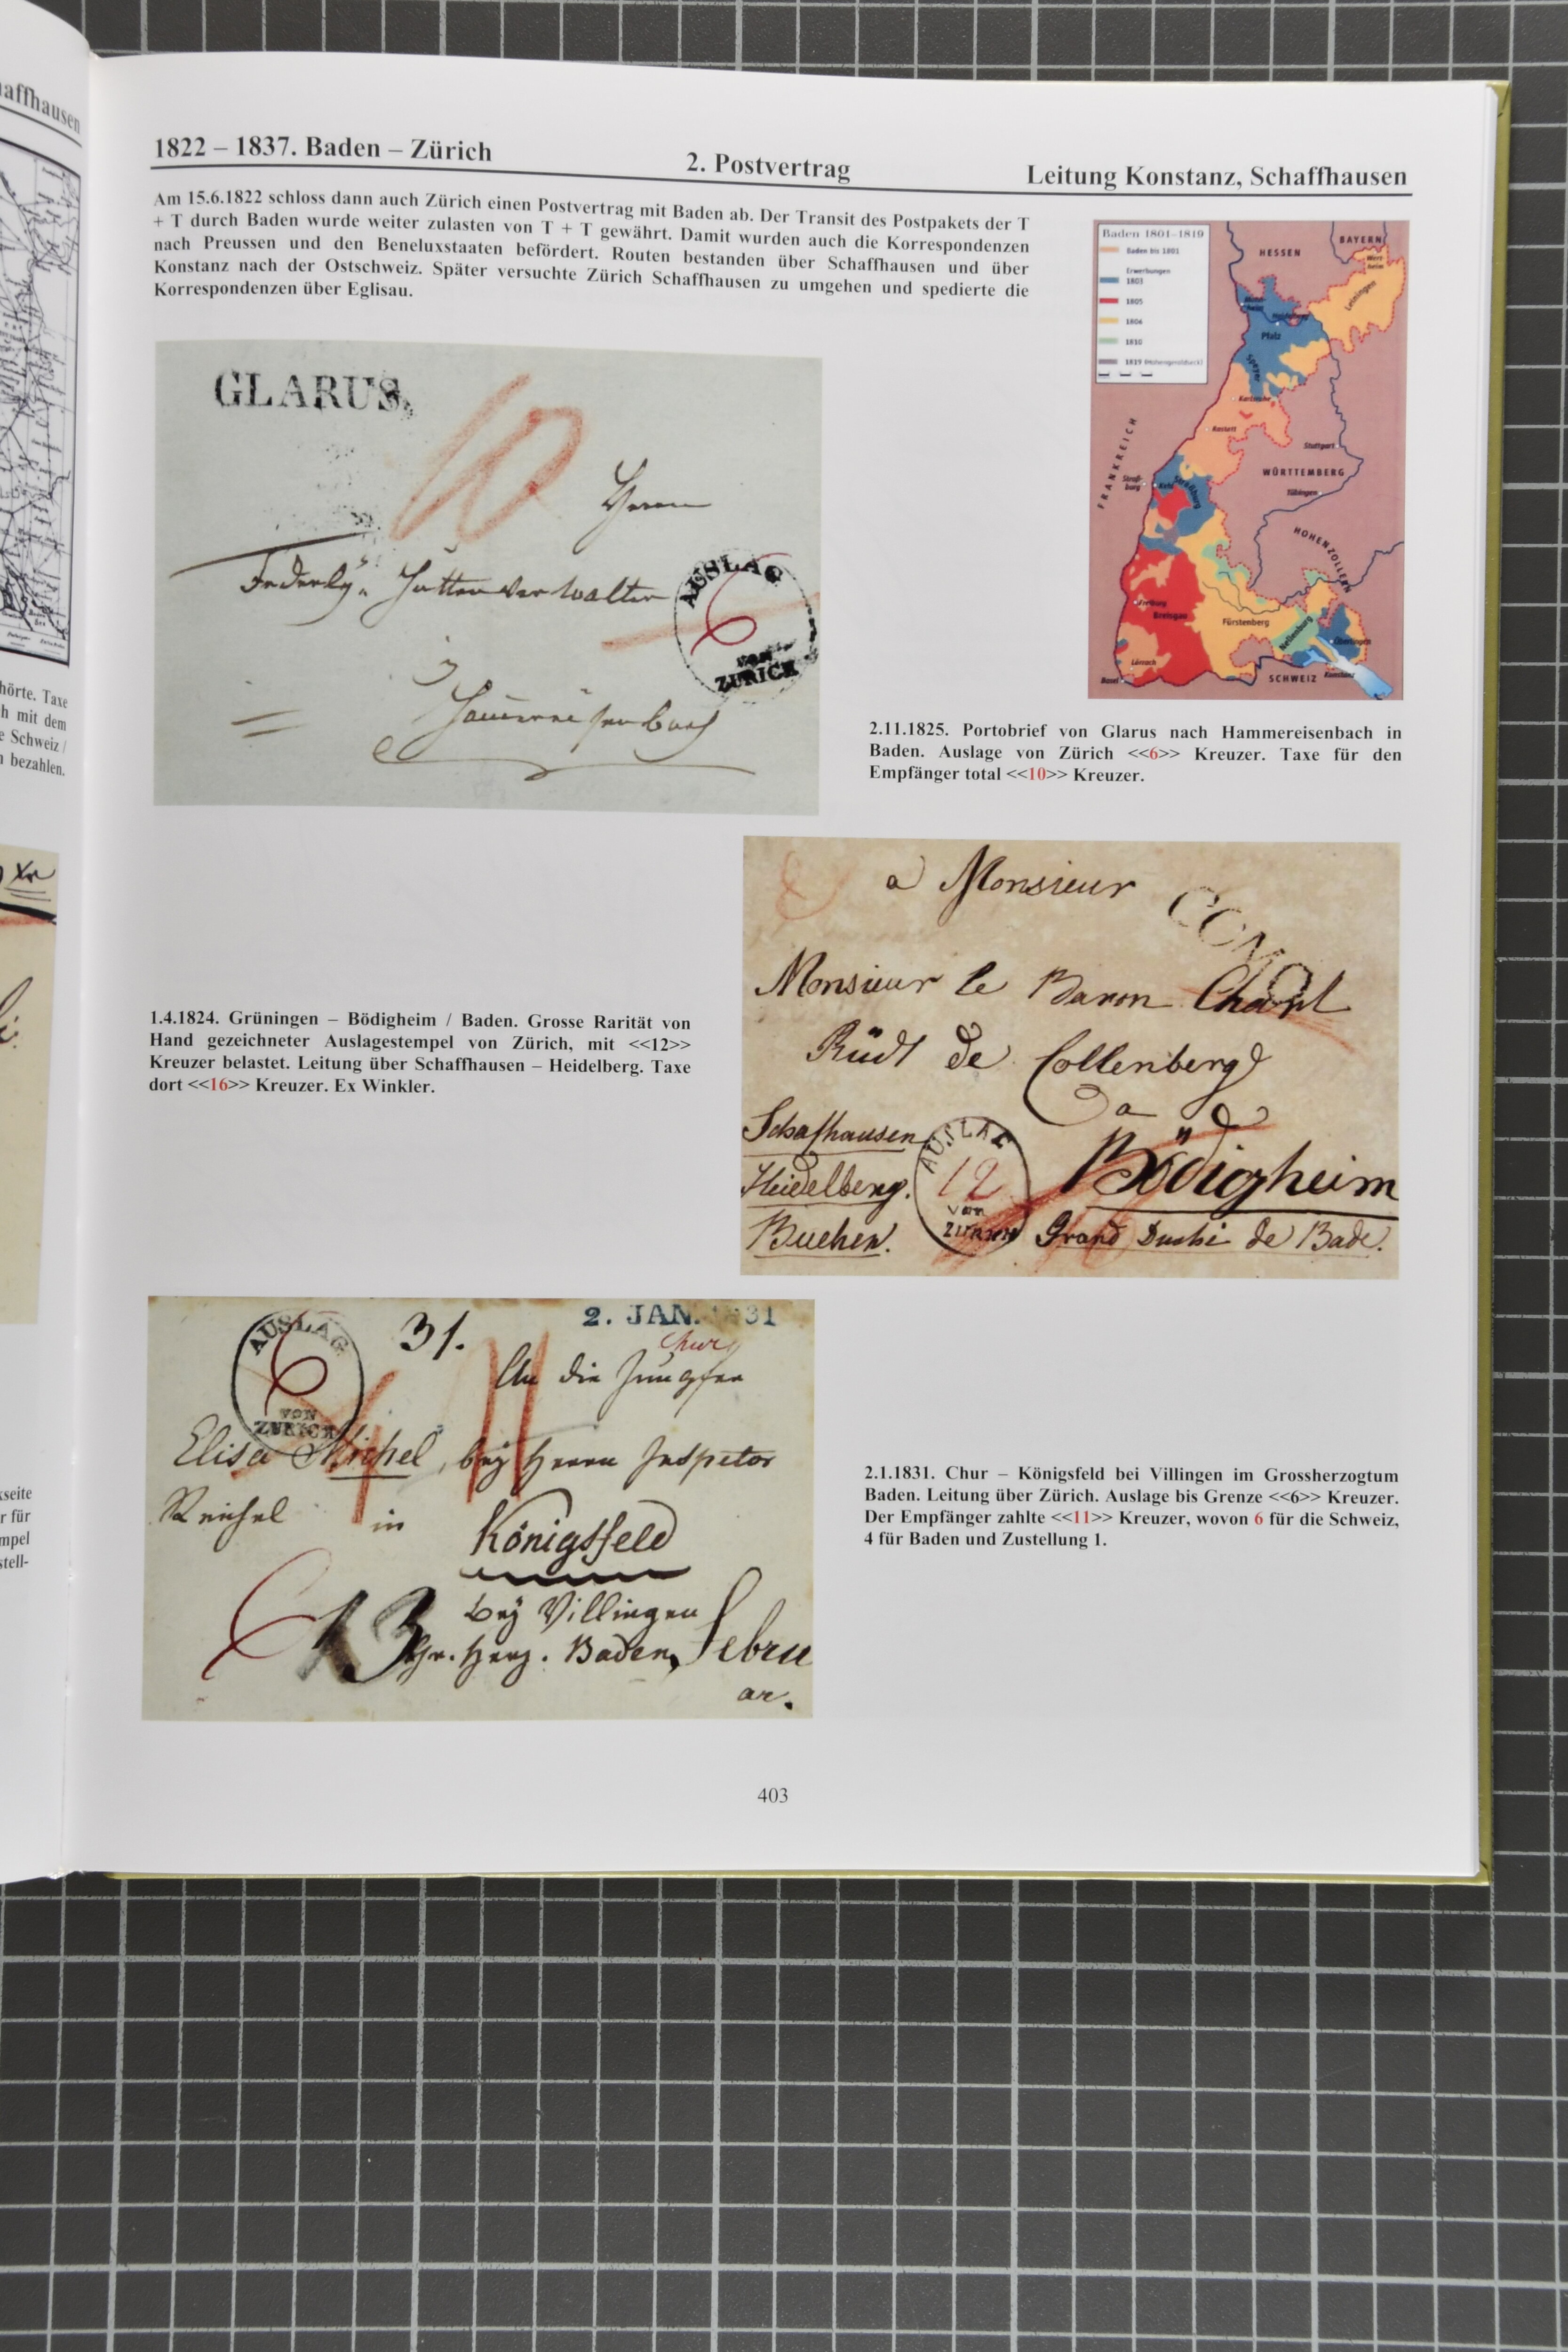 affhausen
hörte. Taxe
h mit dem
e Schweiz /
n bezahlen.
kseite
r für
mpel
stell-
1822 – 1837. Baden – Zürich
2. Postvertrag
Leitung Konstanz, Schaffhausen
Am 15.6.1822 schloss dann auch Zürich einen Postvertrag mit Baden ab. Der Transit des Postpakets der T
+ T durch Baden wurde weiter zulasten von T + T gewährt. Damit wurden auch die Korrespondenzen
nach Preussen und den Beneluxstaaten befördert. Routen bestanden über Schaffhausen und über
Konstanz nach der Ostschweiz. Später versuchte Zürich Schaffhausen zu umgehen und spedierte die
Korrespondenzen über Eglisau.
Baden 1801–1819
Baden bis 1801
Erwerbungen
1803
1805
1806
1810
1819 (Hohengeroldseck)
HESSEN
BAYERN
Wertheim
Leiningen
Heidelberg
Pfalz
Speyer
Karlsruhe
Rastatt
Stuttgart
FRANKREICH
WÜRTTEMBERG
Straßburg
Kehl
Tübingen
HOHENZOLLERN
Freiburg
Breisgau
Fürstenberg
Nellenburg
Überlingen
Lörrach
Basel
SCHWEIZ
Konstanz
GLARUS.
10
Herrn
Hüttenverwalter
AUSLAG
6
VON
ZÜRICH
2.11.1825. Portobrief von Glarus nach Hammereisenbach in
Baden. Auslage von Zürich <<6>> Kreuzer. Taxe für den
Empfänger total <<10>> Kreuzer.
a Monsieur
Monsieur le Baron Charl
Rüdt de Collenberg
a
Schafhausen
Heidelberg.
Buchen.
AUSLAG
12
von
ZÜRICH
Bödigheim
Grand Duché de Bade.
1.4.1824. Grüningen – Bödigheim / Baden. Grosse Rarität von
Hand gezeichneter Auslagestempel von Zürich, mit <<12>>
Kreuzer belastet. Leitung über Schaffhausen – Heidelberg. Taxe
dort <<16>> Kreuzer. Ex Winkler.
AUSLAG
6
VON
ZÜRICH
31.
2. JAN. 1831
Chur
An die Jungfer
Elisa Michel, bey Herrn Inspector
Reichel in
Königsfeld
bey Villingen
Gr. Herz. Baden,
Febru
ar.
13
11
2.1.1831. Chur – Königsfeld bei Villingen im Grossherzogtum
Baden. Leitung über Zürich. Auslage bis Grenze <<6>> Kreuzer.
Der Empfänger zahlte <<11>> Kreuzer, wovon 6 für die Schweiz,
4 für Baden und Zustellung 1.
403